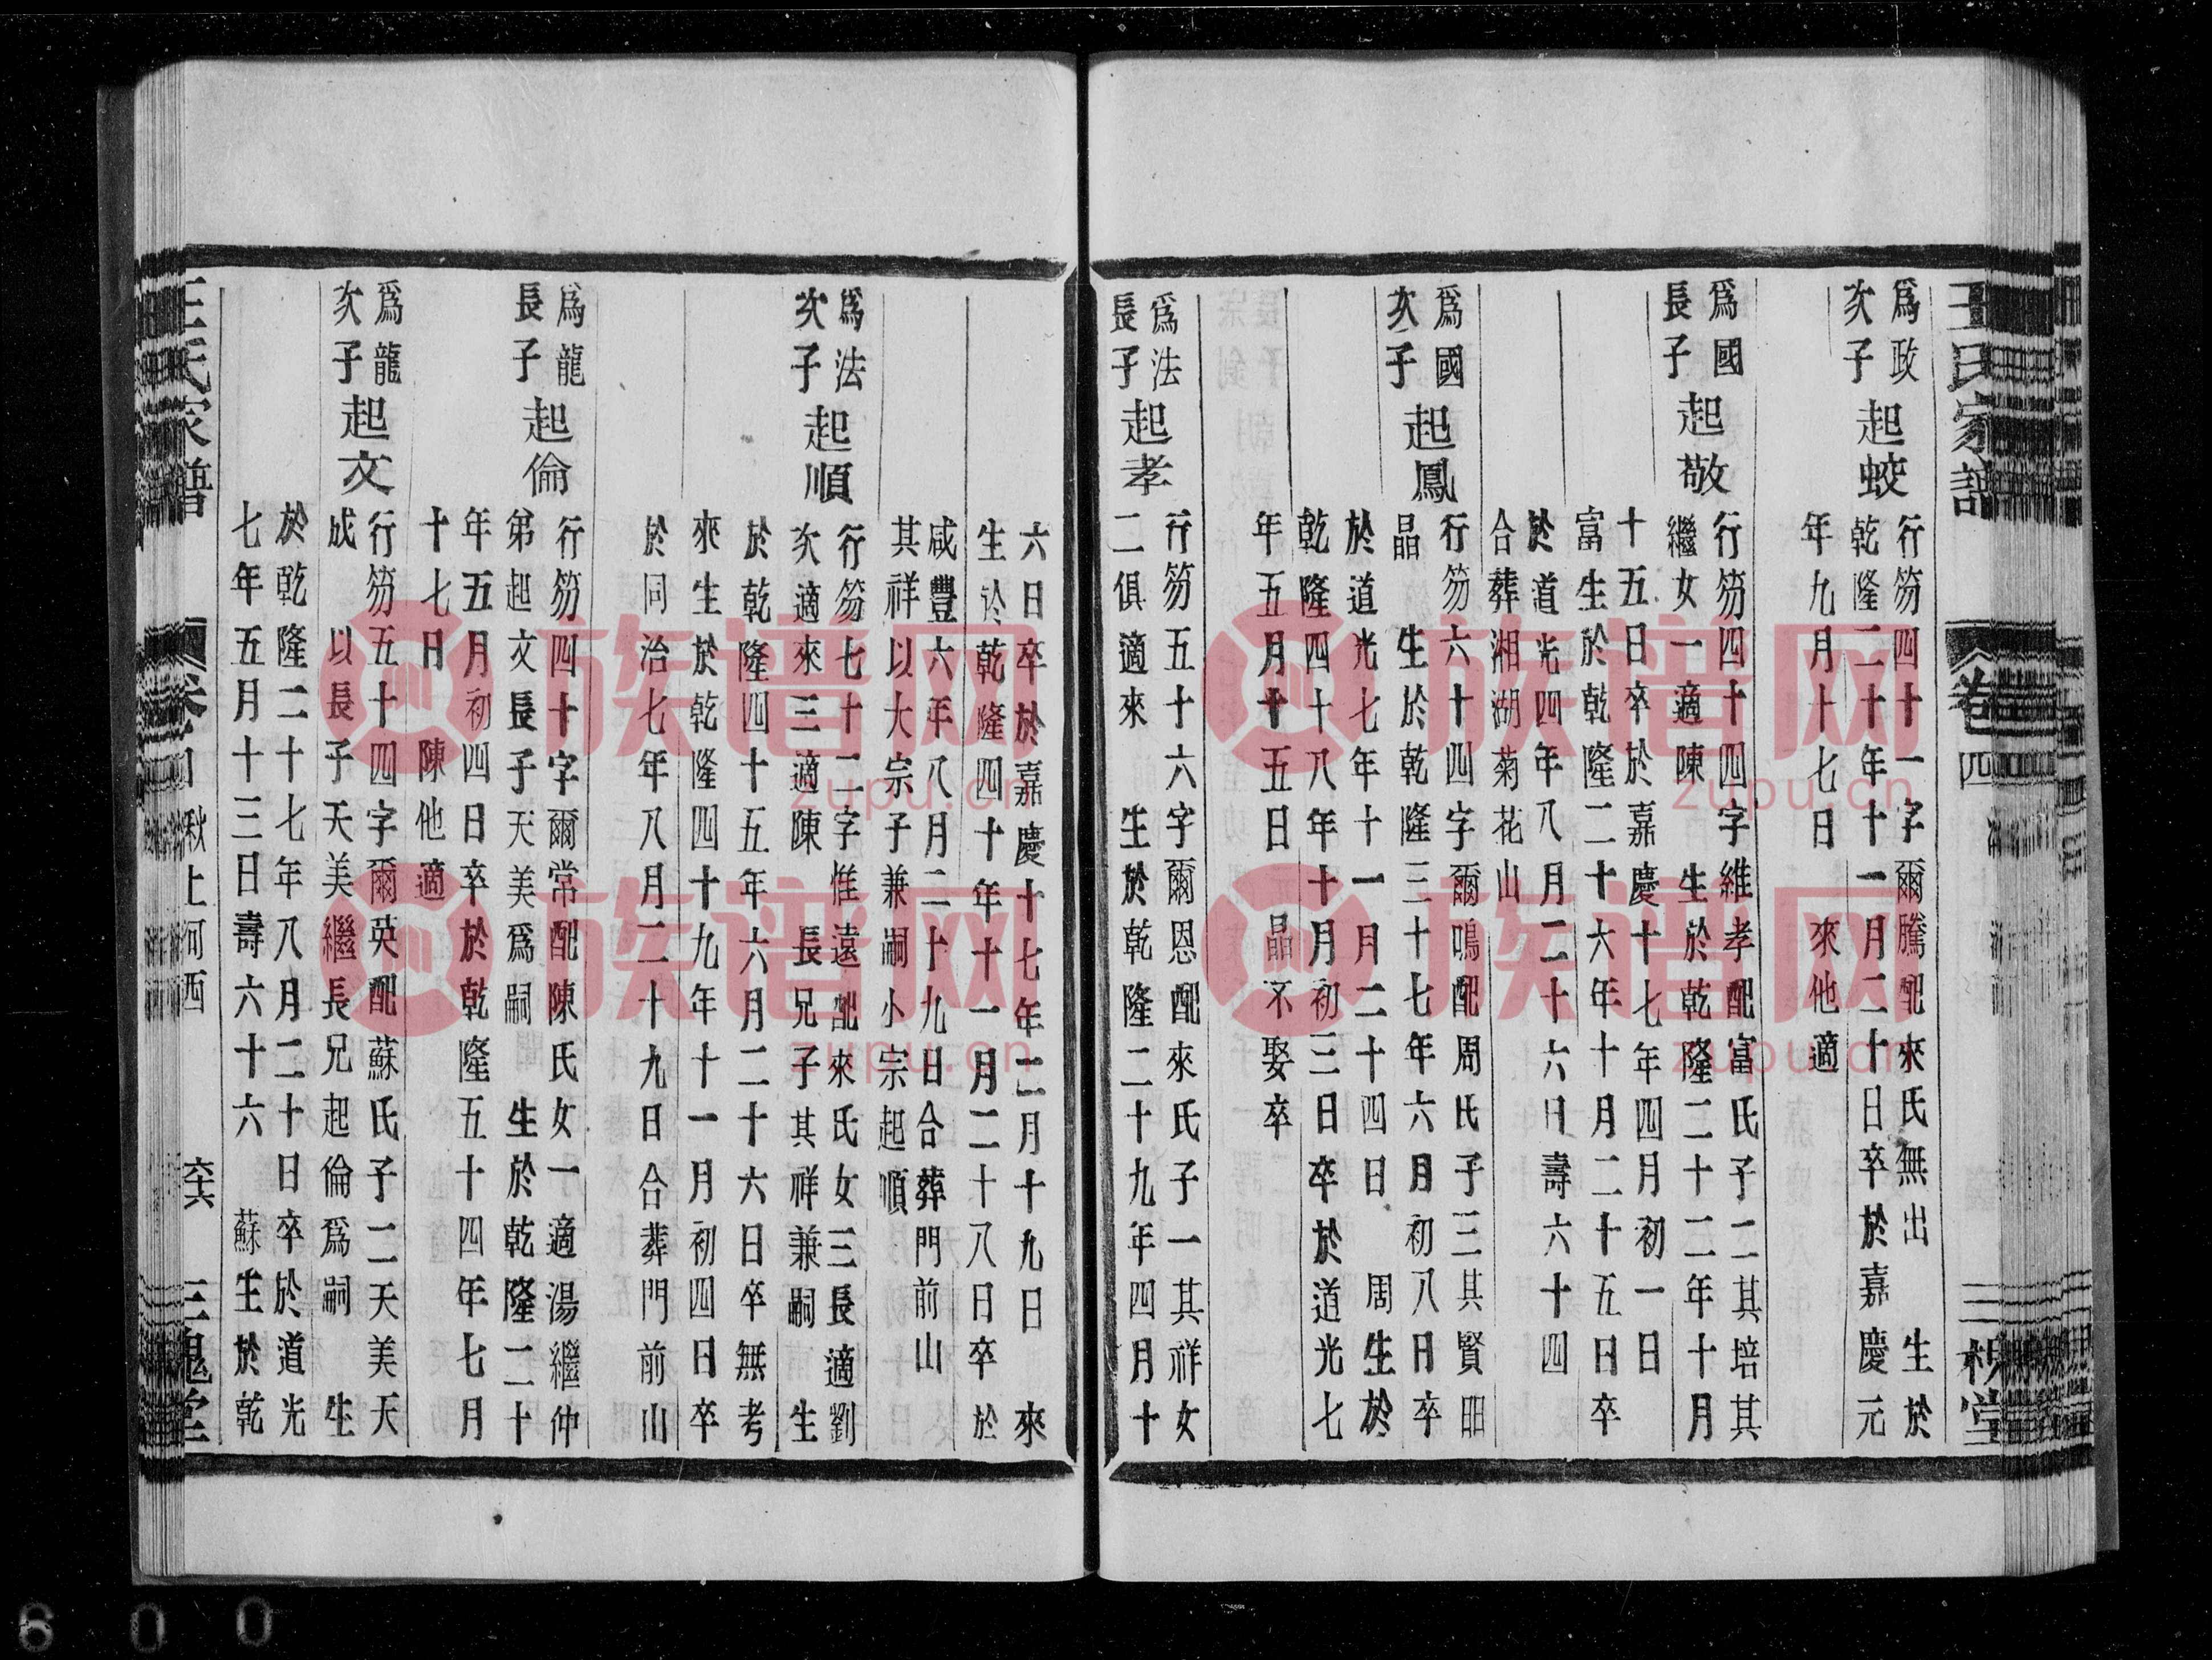 王氏家譜
卷四
三槐堂
為政
次子
起蛟
行笏四十一字爾騰配來氏無出 生於
乾隆二十年十一月二十日卒於嘉慶元
年九月十七日 來他適
為國
長子
起敬
行笏四十四字維孝配富氏子二其培其
繼女一適陳 生於乾隆二十二年十月
十五日卒於嘉慶十七年四月初一日
富生於乾隆二十六年十月二十五日卒
於道光四年八月二十六日壽六十四
合葬湘湖菊花山
為國
次子
起鳳
行笏六十四字爾鳴配周氏子三其賢皿
晶 生於乾隆三十七年六月初八日卒
於道光七年十一月二十四日 周生於
乾隆四十八年十月初三日卒於道光七
年五月十五日 晶不娶卒
為法
長子
起孝
行笏五十六字爾恩配來氏子一其祥女
二俱適來 生於乾隆二十九年四月十
六日卒於嘉慶十七年二月十九日 來
生於乾隆四十年十一月二十八日卒於
咸豐六年八月二十九日合葬門前山
其祥以大宗子兼嗣小宗起順
為法
次子
起順
行笏七十二字惟遠配來氏女三長適劉
次適來三適陳 長兄子其祥兼嗣 生
於乾隆四十五年六月二十六日卒無考
來生於乾隆四十九年十一月初四日卒
於同治七年八月二十九日合葬門前山
為龍
長子
起倫
行笏四十字爾常配陳氏女一適湯繼仲
弟起文長子天美為嗣 生於乾隆二十
年五月初四日卒於乾隆五十四年七月
十七日 陳他適
為龍
次子
起文
行笏五十四字爾英配蘇氏子二天美天
成 以長子天美繼長兄起倫為嗣 生
於乾隆二十七年八月二十日卒於道光
七年五月十三日壽六十六 蘇生於乾
王氏家譜
卷四 湫上河西
六六
三槐堂
族谱网
zupu.cn
族谱网
zupu.cn
族谱网
zupu.cn
族谱网
zupu.cn
600